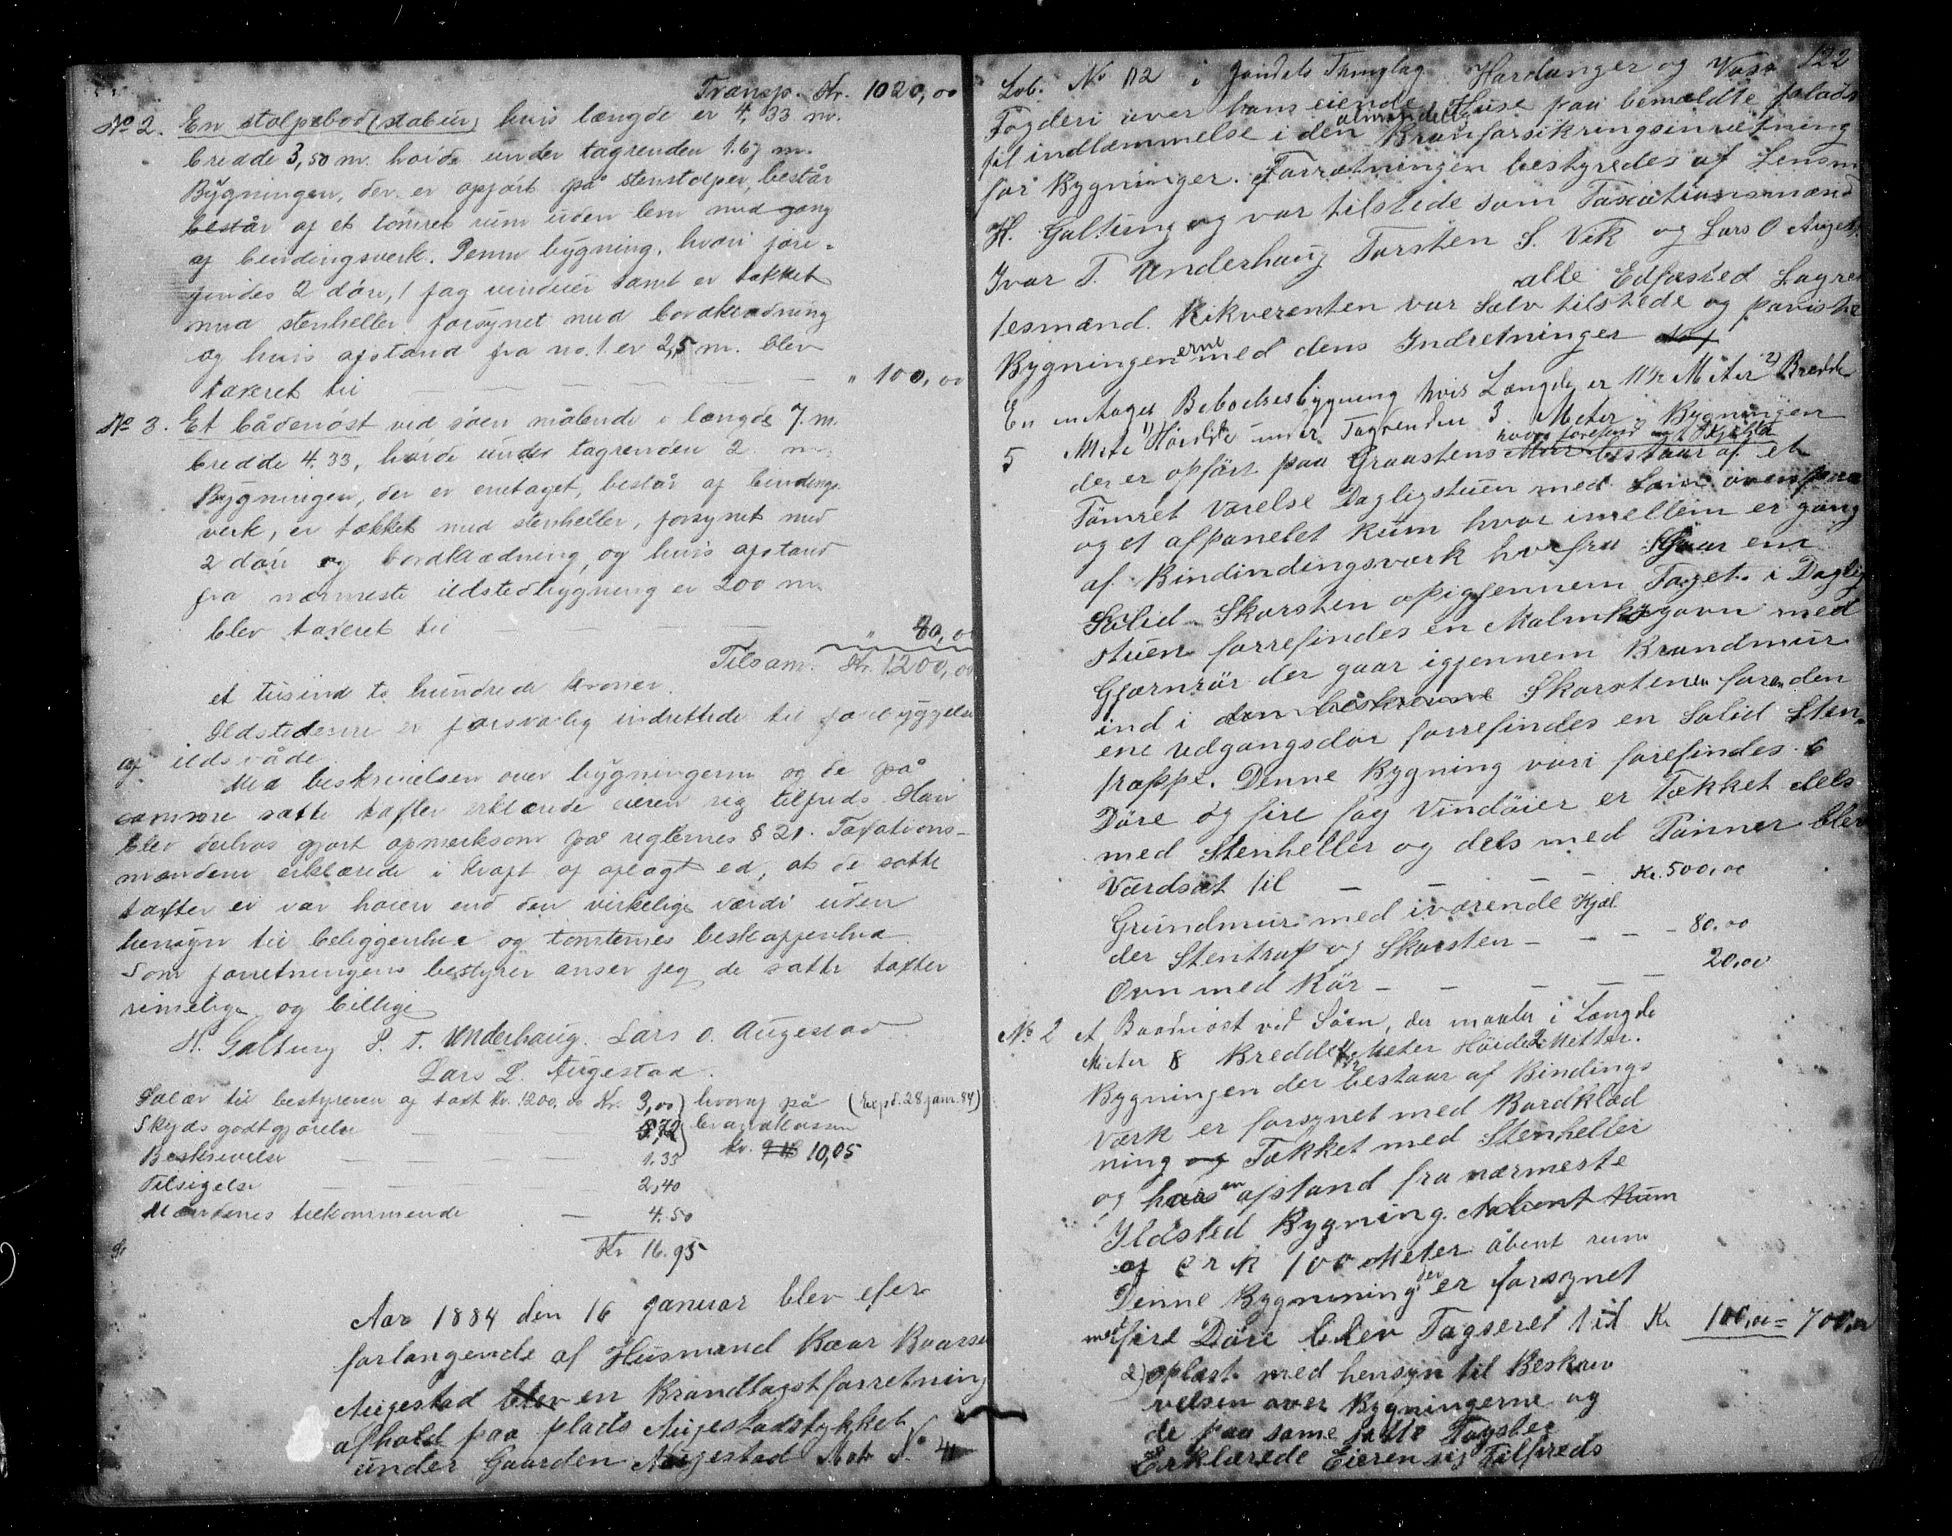 Transp. Kr. 1020,00
No 2. En stolpebod (stabur) hvis længde er 4,33 m.
bredde 3,50 m. høide under tagrenden 1.67 m.
Bygningen, der er opført på stenstolper, består
består af et tømret rum uden lem med gang
af bendingsverk. Denne bygning, hvori fore-
findes 2 døre, 1 fag vinduer samt er tækket
med stenheller, forsynet med bordklædning
og hvis afstand fra no. 1 er 2,5 m. blev
taxeret til — — — — " 100,00
No 3. Et bådenøst ved søen målende i længde 7 m.
bredde 4.33, høide under tagrenden 2 m.
Bygningen, der er enetaget, består af bindings
verk, er tækket med stenheller, forsynet med
2 døre og bordklædning, og hvis afstand
fra nærmeste ildstedbygning er 200 m.
blev taxeret til — — " 80,00
Tilsam. Kr. 1200,00
et tusind to hundrede kroner.
Ildstederne er forsvarlig indrettede til forebyggelse
af ildsvåde.
Med beskrivelsen over bygningerne og de på
samme satte tafter erklærede eieren sig tilfreds. Han
blev derhos gjort opmerksom på reglernes § 21. Taxations-
mændene erklærede i kraft af aflagt ed, at de satte
taxter ei var høiere end den virkelige værdi uden
hensyn til beliggenhed og tomternes beskaffenhed.
Som forretningens bestyrer anser jeg de satte taxter
rimelige og billige
H. Galtung I. T. Underhaug. Lars O. Augestad
Lars L. Augestad.
Salær til bestyreren af taxt kr. 1200,00 Kr. 3,00 } hvoraf på (Exp. 28 janr. 84)
Skydsgodtgjørelse — — 5,72 } brandkassen
Beskrivelse — — — 1.33 kr. 10,05
Tilsigelse — — — 2,40
Mændenes tilkommende — 4.50
Kr 16.95
Aar 1884 den 16 januar blev efter
forlangende af Husmand Baar Baarsen
Augestad blev en Brandtagstforretning
afhold paa plads Augestadstykket
under Gaarden Augestad Mat N. 4
122
Lob. No 112 i Jondals Thinglag Hardanger og Voss
Fogderi over hans eiende Huse paa bemældte plads
til indlæmmelse i den almindelige Branforsikringsinrætning
for Bygninger. Forrætningen bestyredes af Lensm
H. Galtung og var tilstede som Taxationsmænd
Ivar T. Underhaug Torsten S. Vik og Lars O Auges.
alle Edfæsted Lagre
tesmænd. Rikverenten var Sælv tilstede og paviste
Bygningen erne med dens Indretninger
En etages Beboelsesbygning hvis Længde er 11 ½ Meter 2) Bredde
5 Mete Høide under Tagrenden 3 Meter. Bygningen
der er opført paa Graastens Mur hvori forefind et Kjelder bestaar af et
Tømret Værelse Dagligstuen med Laim ovenpaa
og et afpanelet Rum hvor imellem er gang
af Bindindingsværk hvorfra Gaar en
Solid Skorsten opigjennem Taget. i Daglig
stuen forrefindes en Malmkogovn med
Gjærnrør der gaar igjennem Brandmur
ind i den beskrevne Skorstenen foran den
ene udgangsdør forrefindes en Solid Sten-
trappe. Denne Bygning vori forefindes 6
Døre og fire fag Vindøier er Tækket dels
med Stenheller og dels med Panner blev
Værdsat til — — — — Kr. 500,00
Grundmur med iværende Kjæl
der Stentrap og Skorsten — — — 80.00
Ovn med Rør — — — — 20,00
No 2 et Baadnøst ved Søen, der maaler i Længde
Meter 8 Bredde 4 ½ Meter Høide 2 Metter.
Bygningen der bestaar af Bindings
værk er forsynet med Bordklæd
ning og Tækket med Stenheller
og hvis en afstand fra nærmeste
Ildsted Bygning Aabent Rum
af er k 100 Meter åbent rum
Denne Bygnining der er forsynet
med fire Døre blev Tagseret til Kr 100,00 = 700,00
2) oplæst. med hensyn til Beskriv
velsen over Bygningerne og
de paa same satte Tagster
Erklærede Eieren sig Tilfreds